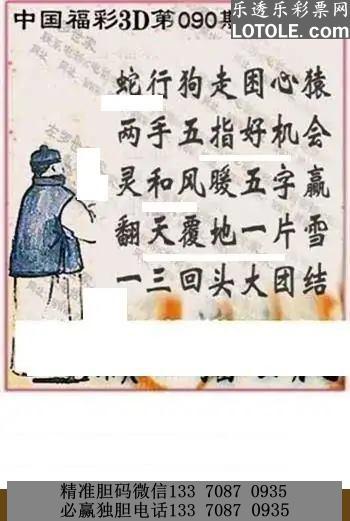 乐透乐彩票网
LOTOLE.COM
中国福彩3D第090期
蛇行狗走困心猿
两手五指好机会
灵和风暖五字赢
翻天覆地一片雪
一三回头大团结
精准胆码微信133 7087 0935
必赢独胆电话133 7087 0935